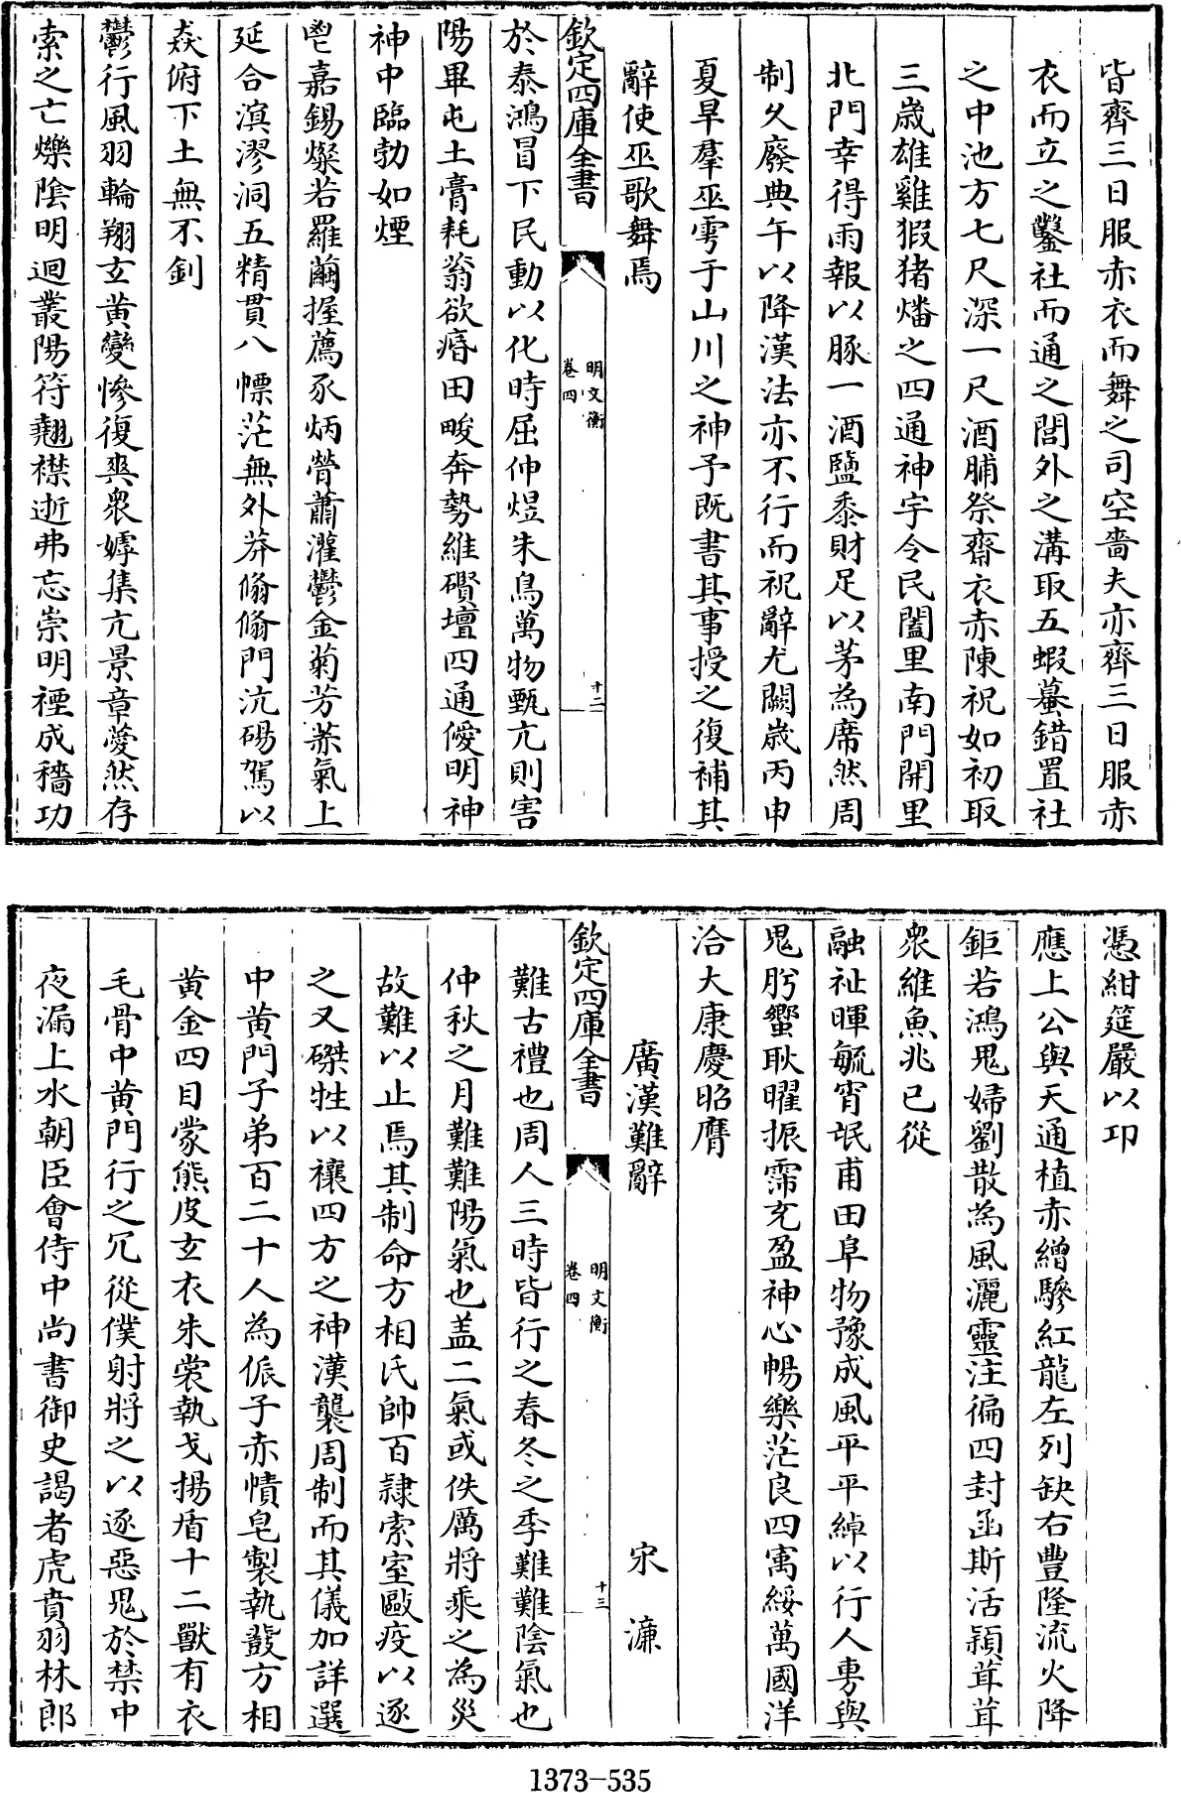 皆齊三日服赤衣而舞之司空嗇夫亦齊三日服赤
衣而立之鑿社而通之閭外之溝取五蝦蟇錯置社
之中池方七尺深一尺酒脯祭齋衣赤陳祝如初取
三歲雄雞猳猪燔之四通神宇令民闔里南門開里
北門幸得雨報以豚一酒鹽黍財足以茅為席然周
制久廢典午以降漢法亦不行而祝辭尤闕歲丙申
夏旱羣巫雩于山川之神予既書其事授之復補其
辭使巫歌舞焉
欽定四庫全書
明文衡
卷四
十二
於泰鴻冒下民動以化時屈伸煜朱鳥萬物甄亢則害
陽畢屯土膏耗蓊欲瘠田畯奔勢維礥壇四通僾明神
神中臨勃如煙
鬯嘉錫粲若羅繭握薦豕炳膋蕭灌鬱金菊芳菜氣上
延合滇漻洞五精貫八慓茫無外莽翛翛門沆碭駕以
猋俯下土無不釗
鬱行風羽輪翔玄黃變慘復爽衆嫭集亢景章薆然存
索之亡爍陰明迥叢陽符翹襟逝弗忘崇明禋成穡功
憑紺筵嚴以卭
應上公與天通植赤繒驂紅龍左列缺右豐隆流火降
鉅若鴻鬼婦劉散為風灑靈注徧四封函斯活穎茸茸
衆維魚兆已從
融祉暉毓宵氓甫田阜物豫成風平平綽以行人專與
鬼肸蠁耿曜振霈充盈神心暢樂茫良四寓綏萬國洋
洽大康慶昭膺
廣漢難辭 宋濂
欽定四庫全書
明文衡
卷四
十三
難古禮也周人三時皆行之春冬之季難難陰氣也
仲秋之月難難陽氣也蓋二氣或佚厲將乘之為災
故難以止焉其制命方相氏帥百隸索室毆疫以逐
之又磔牲以禳四方之神漢襲周制而其儀加詳選
中黃門子弟百二十人為侲子赤幘皂製執鼗方相
黃金四目蒙熊皮玄衣朱裳執戈揚盾十二獸有衣
毛骨中黃門行之冗從僕射將之以逐惡鬼於禁中
夜漏上水朝臣會侍中尚書御史謁者虎賁羽林郎
1373-535